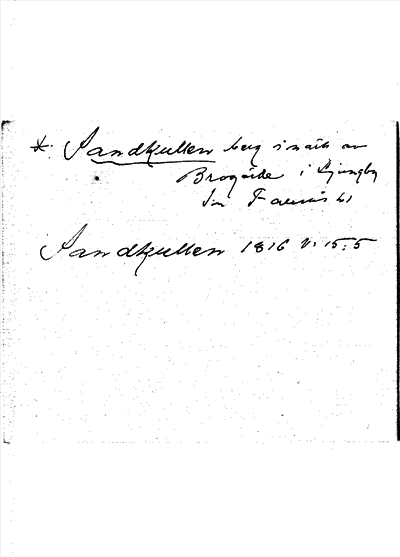 * Sandkullen berg i närh av
Brogärde i Ljungby
sn Faurås hd
Sandkullen 1816 V. 15:5